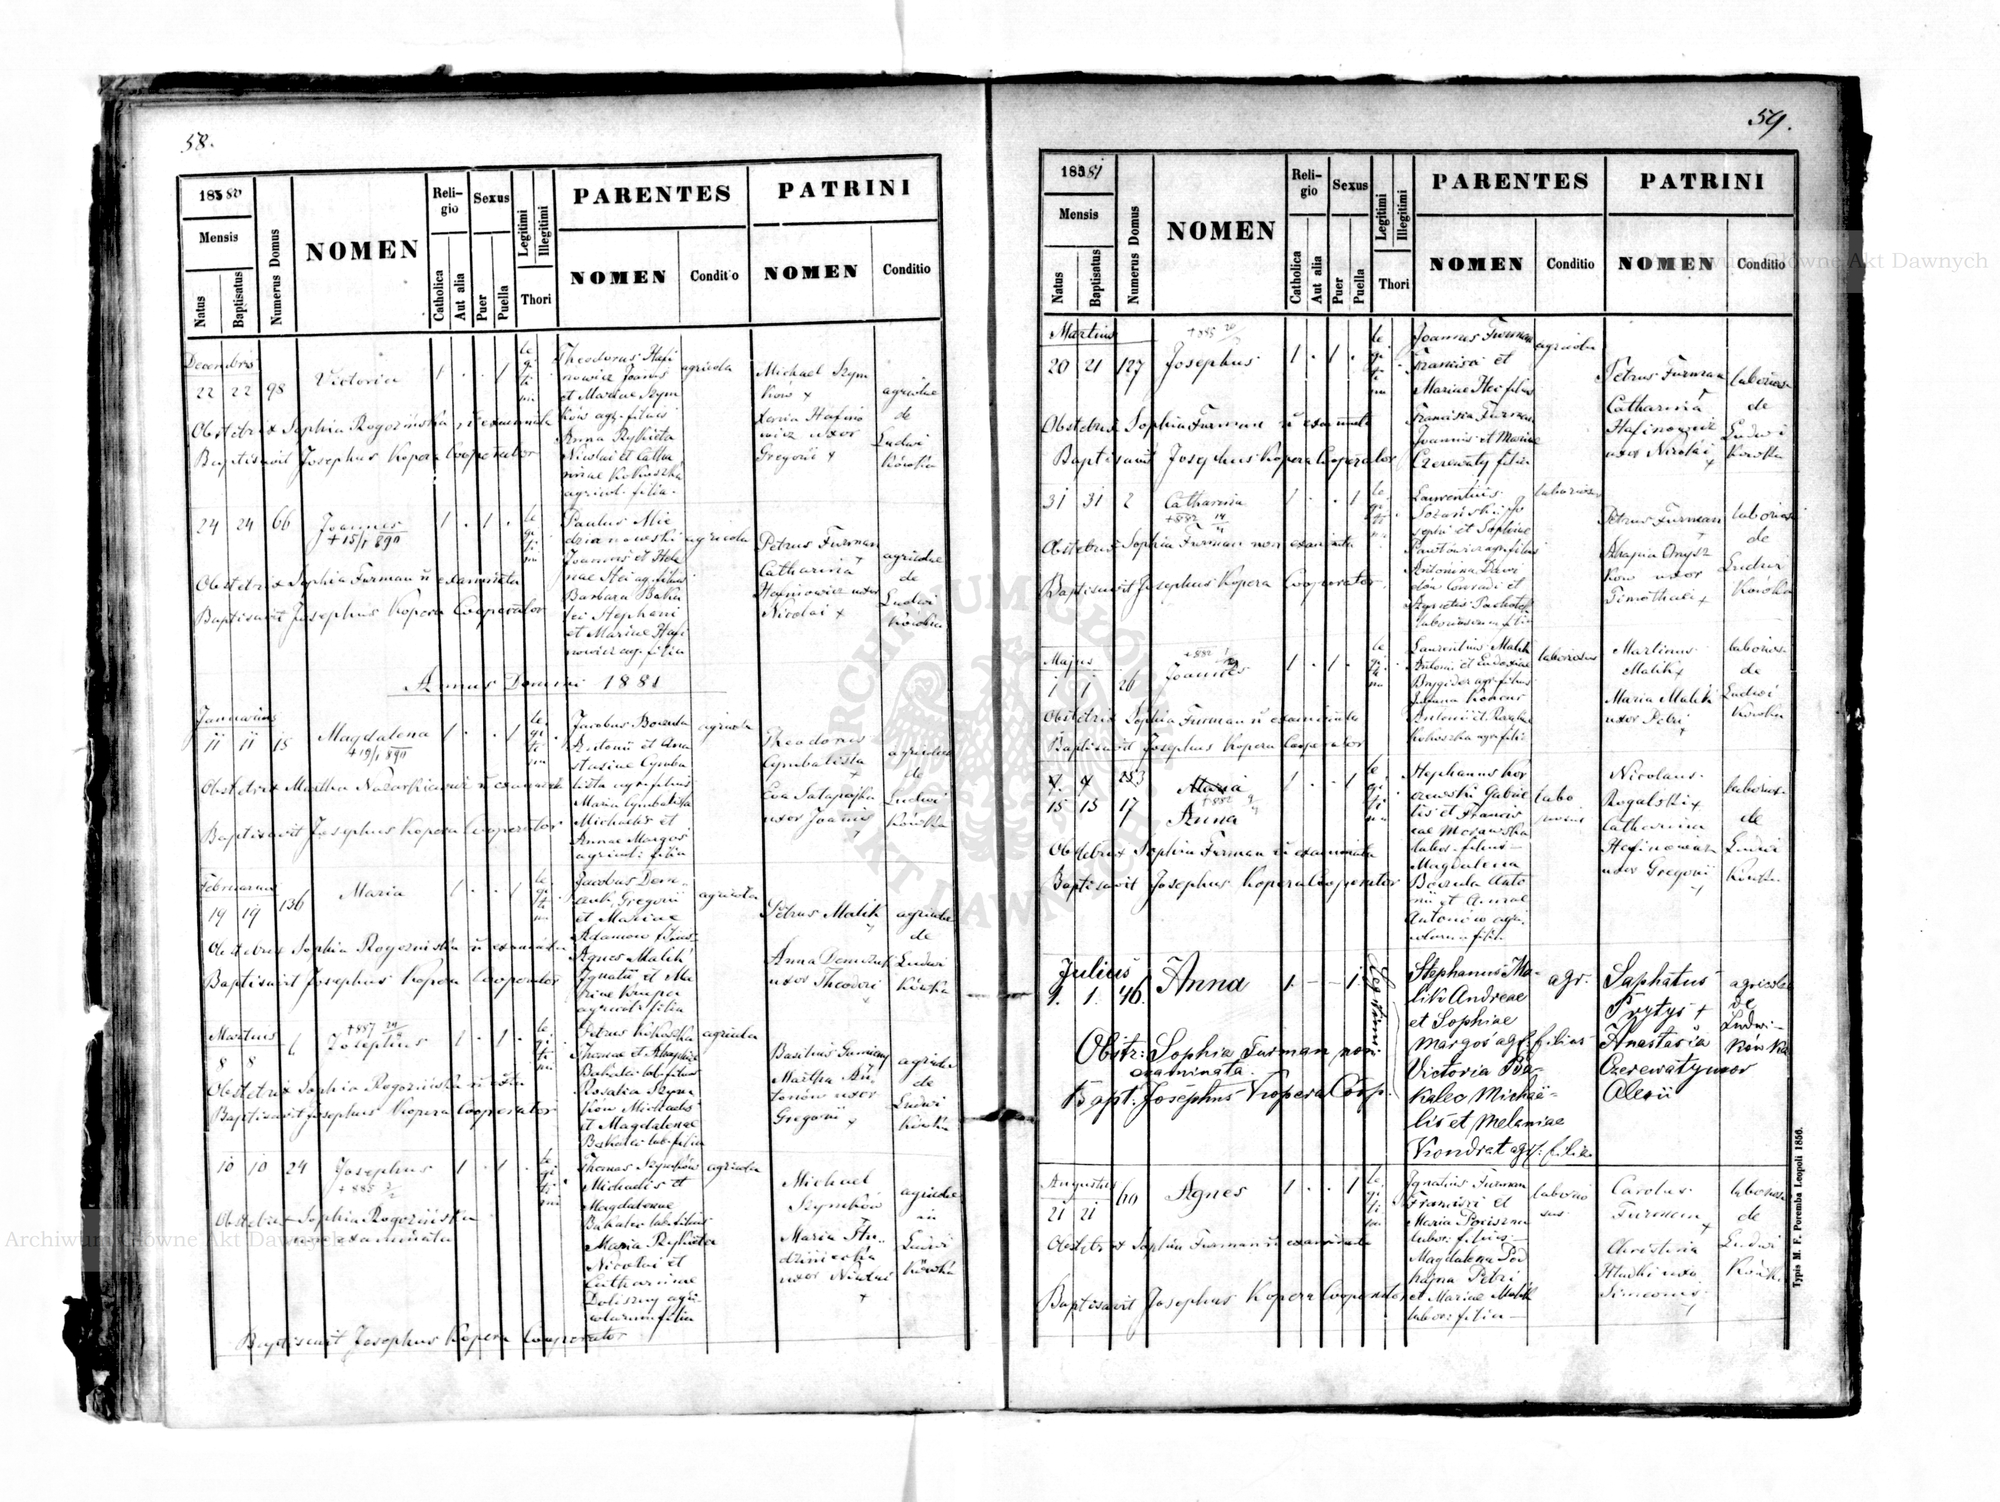 58.
1880
Mensis
Natus
Baptisatus
Numerus Domus
NOMEN
Religio
Catholica
Aut alia
Sexus
Puer
Puella
Legitimi
Illegitimi
Thori
PARENTES
NOMEN
Conditio
PATRINI
NOMEN
Conditio
Decembris
22 22 98 Victoria 1 . . 1
legitimi
Theodorus Hafi
nowicz Joannis
et Mariae Szym
ków agr. filius
Anna Rykieta
Nicolai et Catha
rinae Kokoszka
agricol. filia.
agricola
Michael Szym
ków +
Xenia Hafino
wicz uxor
Gregorii +
agricolae
de
Ludwi
kówka
Obstetrix Sophia Rogozińska n examinata
Baptisavit Josephus Kopera Cooperator
24 24 66 Joannes 1 . 1 .
+ 15/1 890
legitimi
Paulus Mie
dzianowski
Joannis et Hele
nae Hei ag. filius
Barbara Baku
lei Stephani
et Mariae Hafi
nowicz ag. filia
agricola
Petrus Furman
+
Catharina
Hafinowicz uxor
Nicolai +
agricolae
de
Ludwi
kówka
Obstetrix Sophia Furman n examinata
Baptisavit Josephus Kopera Cooperator
Annus Domini 1881
Januarius
11 11 15 Magdalena 1 . . 1
+ 19/1 890
legitimi
Jacobus Boczula
Antonii et Ana
stasiae Cymba
lista agr. filius
Maria Cymbalista
Michaelis et
Annae Margos
agricol: filia
agricola
Theodorus
Cymbalista
+
Eva Satapajka
uxor Joannis
+
agricolae
de
Ludwi
kówka
Obstetrix Martha Nazarkiewicz n examinata
Baptisavit Josephus Kopera Cooperator
Februarius
19 19 136 Maria 1 . . 1
legitimi
Jacobus Dem-
czuk, Gregorii
et Mariae
Adamow filius
Agnes Malik
Ignatii et Ma
riae Krupa
agricol: filia
agricola
Petrus Malik
+
Anna Demczuk
uxor Theodori
+
agricolae
de
Ludwi
kówka
Obstetrix Sophia Rogozińska n examinata
Baptisavit Josephus Kopera Cooperator
Martius
8 8 6 Josephus 1 . 1 .
+ 887
legitimi
Petrus Kokoszka
Thomae et
Bakalec lab. filius
Rosalia Szym
ków Michaelis
et Magdalenae
Bakalec lab. filia
agricola
Basilius
Martha
uxor
Gregorii +
agricolae
de
Ludwi
kówka
Obstetrix Sophia Rogozińska n
Baptisavit Josephus Kopera Cooperator
10 10 24 Josephus 1 . 1 .
+ 885
legitimi
Thomas Szymków
Michaelis et
Magdalenae
Bakalec lab. filius
Maria Rykieta
Nicolai et
Catharinae
Doliszny agri-
colarum filia
agricola
Michael
Szymków
Maria
uxor
+
agricolae
in
Ludwi
kówka
Obstetrix Sophia Rogozińska
non examinata
Baptisavit Josephus Kopera Cooperator
59.
1881
Mensis
Natus
Baptisatus
Numerus Domus
NOMEN
Religio
Catholica
Aut alia
Sexus
Puer
Puella
Legitimi
Illegitimi
Thori
PARENTES
NOMEN
Conditio
PATRINI
NOMEN
Conditio
Martius
20 21 127 Josephus 1 . 1 .
+ 885
legitimi
Joannes Furman
Francisci et
Mariae Hec filius
Francisca Furman
Joannis et Mariae
Czerewaty filia
agricola
Petrus Furman
+
Catharina
Hafinowicz
uxor Nicolai
+
laboriosi
de
Ludwi
kówka
Obstetrix Sophia Furman n examinata
Baptisavit Josephus Kopera Cooperator
31 31 2 Catharina 1 . . 1
+ 882
legitimi
Laurentius
Jo
sephi et Sophiae
agr. filius
Antonina Dawi
dów Conradi et
Agnetis
filia
laboriosus
Petrus Furman
+
ków uxor
Timothaei +
laboriosi
de
Ludwi
kówka
Obstetrix Sophia Furman non examinata
Baptisavit Josephus Kopera Cooperator
Majus
1 1 26 Joannes 1 . 1 .
+ 882
legitimi
Laurentius Malik
Antoni et Eudoxiae
agr. filius
Antonii et Rosaliae
Kokoszka agr. filia
laboriosus
Martinus
Malik +
Maria Malik
uxor Petri
+
laboriosi
de
Ludwi
kówka
Obstetrix Sophia Furman n examinata
Baptisavit Josephus Kopera Cooperator
Maria 1 . . 1
15 15 17 Anna
+ 882
legitimi
Stephanus Kor
Gabrie
lis et Francis
cae Morawska
labor. filius
Magdalena
Boczula Anto
nii et Annae
Antonów agri
colarum filia
labo
riosus
Nicolaus
Rogalski +
Catharina
Hafinowicz
uxor Gregorii
+
laboriosi
de
Ludwi
kówka
Obstetrix Sophia Furman n examinata
Baptisavit Josephus Kopera Cooperator
Julius
1. 1. 46. Anna 1. – – 1.
Legitimi
Stephanus Ma-
lik Andreae
et Sophiae
Margos agr. filius
Victoria Ba-
kalec Michaë-
lis et Melaniae
Kondrat agr. filia
agr.
Saphatus
Prytys +
Anastasia
Czerewaty uxor
Alexii
agricolae
de
Ludwi-
kówka
Obstr: Sophia Furman non
examinata.
Bapt: Josephus Kopera Coop.
Augustus
21 21 60 Agnes 1 . . 1
legitimi
Ignatius Furman
Francisci et
Maria
labor: filius
Magdalena Pod
hajna Petri
et Mariae Malik
labor: filia
laborio
sus
Carolus
Furman
+
Christina
Hladki uxor
Simeonis
+
laboriosi
de
Ludwi
kówka
Obstetrix Sophia Furman n examinata
Baptisavit Josephus Kopera Cooperator
Typis M. F. Poremba Leopoli 1856.
Archiwum Główne Akt Dawnych
Archiwum Główne Akt Dawnych
ARCHIWUM GŁÓWNE AKT DAWNYCH